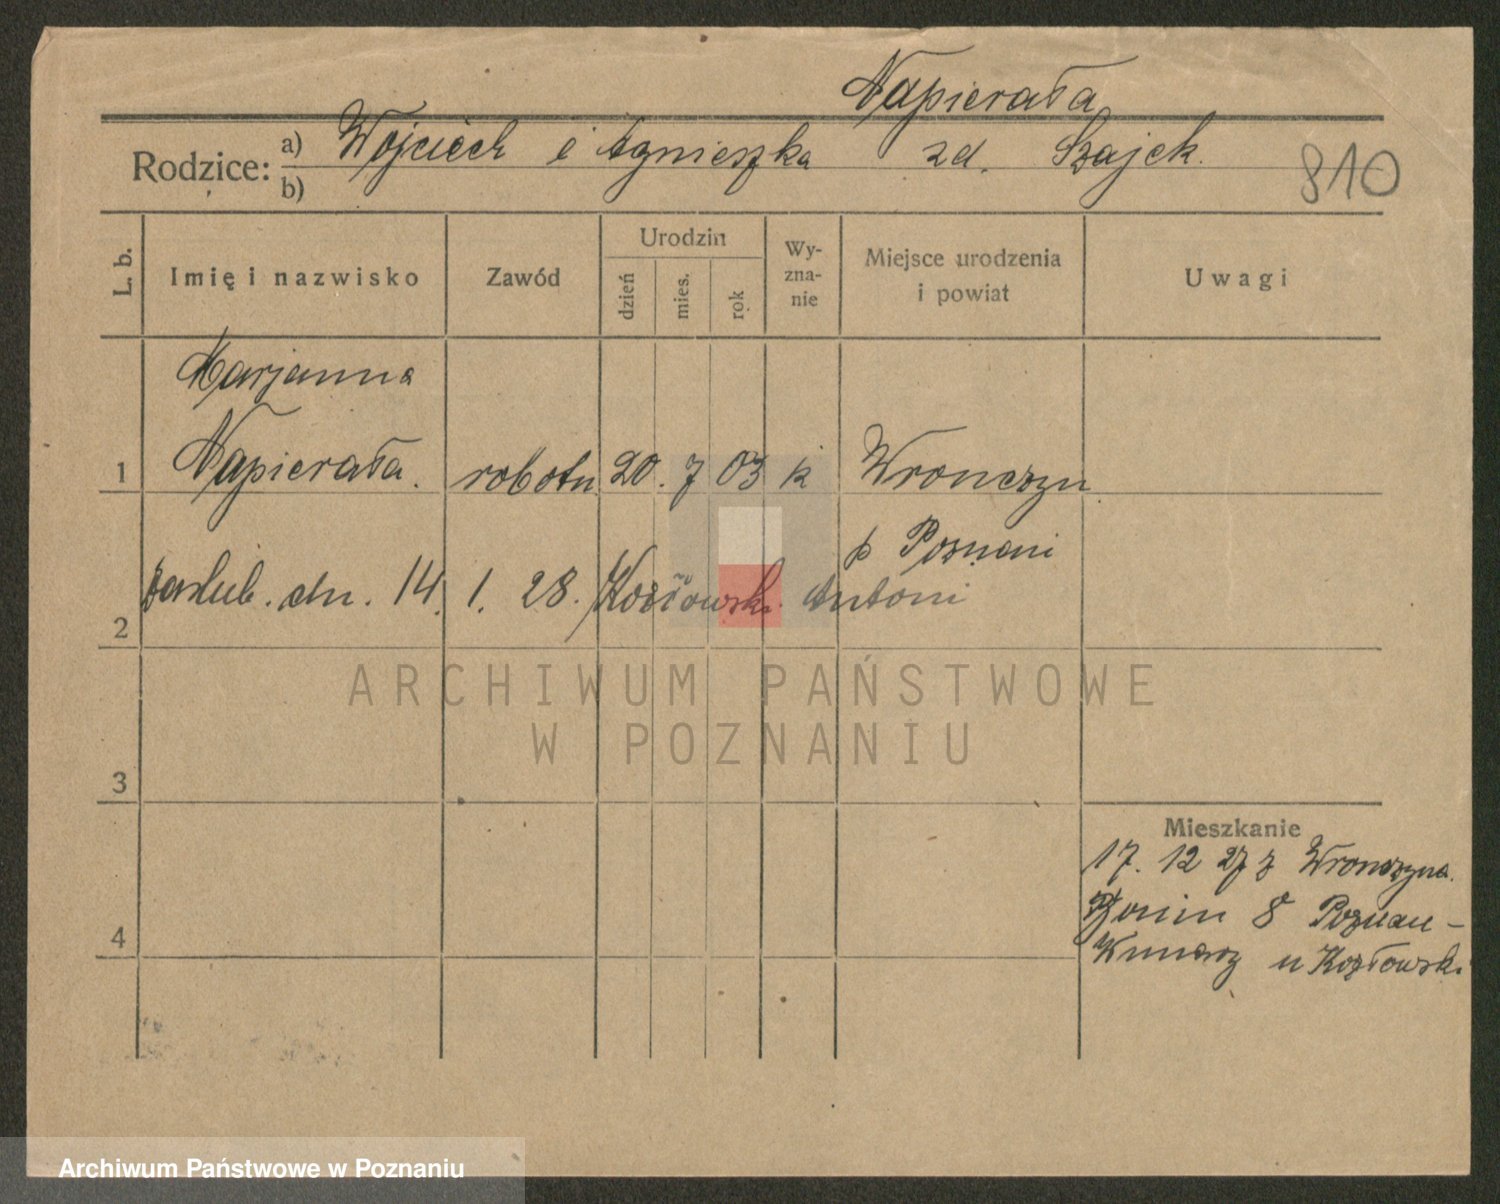 Napierała
Rodzice: a) Wojciech i Agnieszka zd. Szajek.
b)
810
L. b.
Imię i nazwisko
Zawód
Urodzin
dzień
mies.
rok
Wy-
zna-
nie
Miejsce urodzenia
i powiat
Uwagi
Marjanna
1 Napierała. robotn. 20. 7 03 k Wronczyn
p Poznani
2 zaślub. dn. 14. 1. 28. Kozłowski Antoni
ARCHIWUM PAŃSTWOWE
W POZNANIU
3
Mieszkanie
17. 12 27 z Wronczyna.
8 Poznan-
4
u Kozłowski
Archiwum Państwowe w Poznaniu